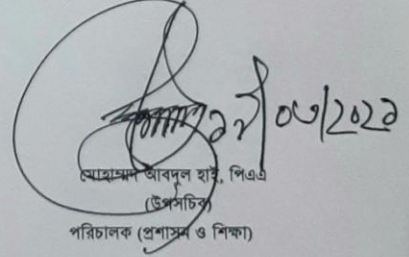 ০৩/২০২১
মোহাম্মদ আবদুল হাই, পিএএ
(উপসচিব)
পরিচালক (প্রশাসন ও শিক্ষা)